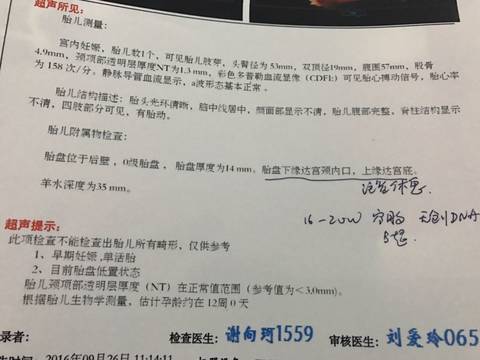 超声所见：
胎儿测量：
宫内妊娠，胎儿数1个，可见胎儿肢芽，头臀径为53mm，双顶径19mm，腹围57mm，股骨
4.9mm，颈项部透明层厚度NT为1.3mm，彩色多普勒血流显像（CDFI）：可见胎心搏动信号，胎心率
为158次/分。静脉导管血流显示，a波形态基本正常。
胎儿结构描述：胎头光环清晰，脑中线居中，颜面部显示不清，胎儿腹部完整，脊柱结构显示
不清，四肢部分可见，有胎动。
胎儿附属物检查：
胎盘位于后壁，0级胎盘，胎盘厚度为14mm。胎盘下缘达宫颈内口，上缘达宫底。
羊水深度为35mm。
注意休息
16-20W 无创DNA
超声提示：
此项检查不能检查出胎儿所有畸形，仅供参考
1、早期妊娠,单活胎
2、目前胎盘低置状态
胎儿颈项部透明层厚度（NT）在正常值范围（参考值为<3.0mm)。
根据胎儿生物学测量，估计孕龄约在12周0天
录者：
检查医生：谢向珂1559
审核医生：刘爱玲065
时间：2016年09月26日 11:14:11